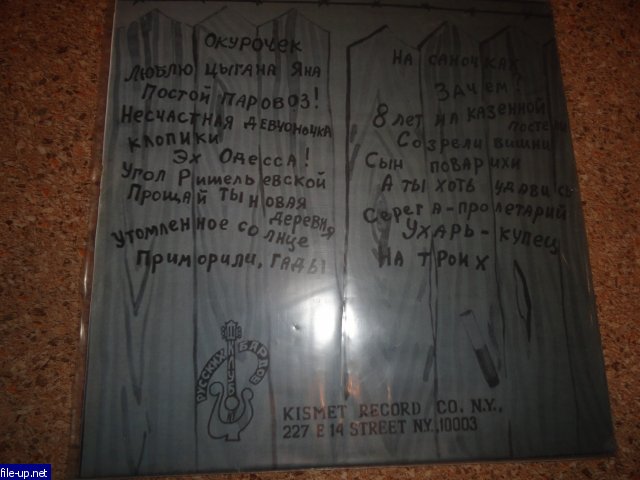 Окурочек
Люблю цыгана Яна
Постой паровоз!
Несчастная девчоночка
клопики
Эх Одесса!
Угол Ришельевской
Прощай ты новая
деревня
Утомленное солнце
Приморили, гады
На саночках
Зачем?
8 лет на казенной
постели
Созрели вишни
Сын поварихи
А ты хоть удавись
Серега-пролетарий
Ухарь-купец
На троих
РУССКИХ БАРДОВ
KISMET RECORD CO. N.Y.,
227 E 14 STREET NY, 10003
file-up.net